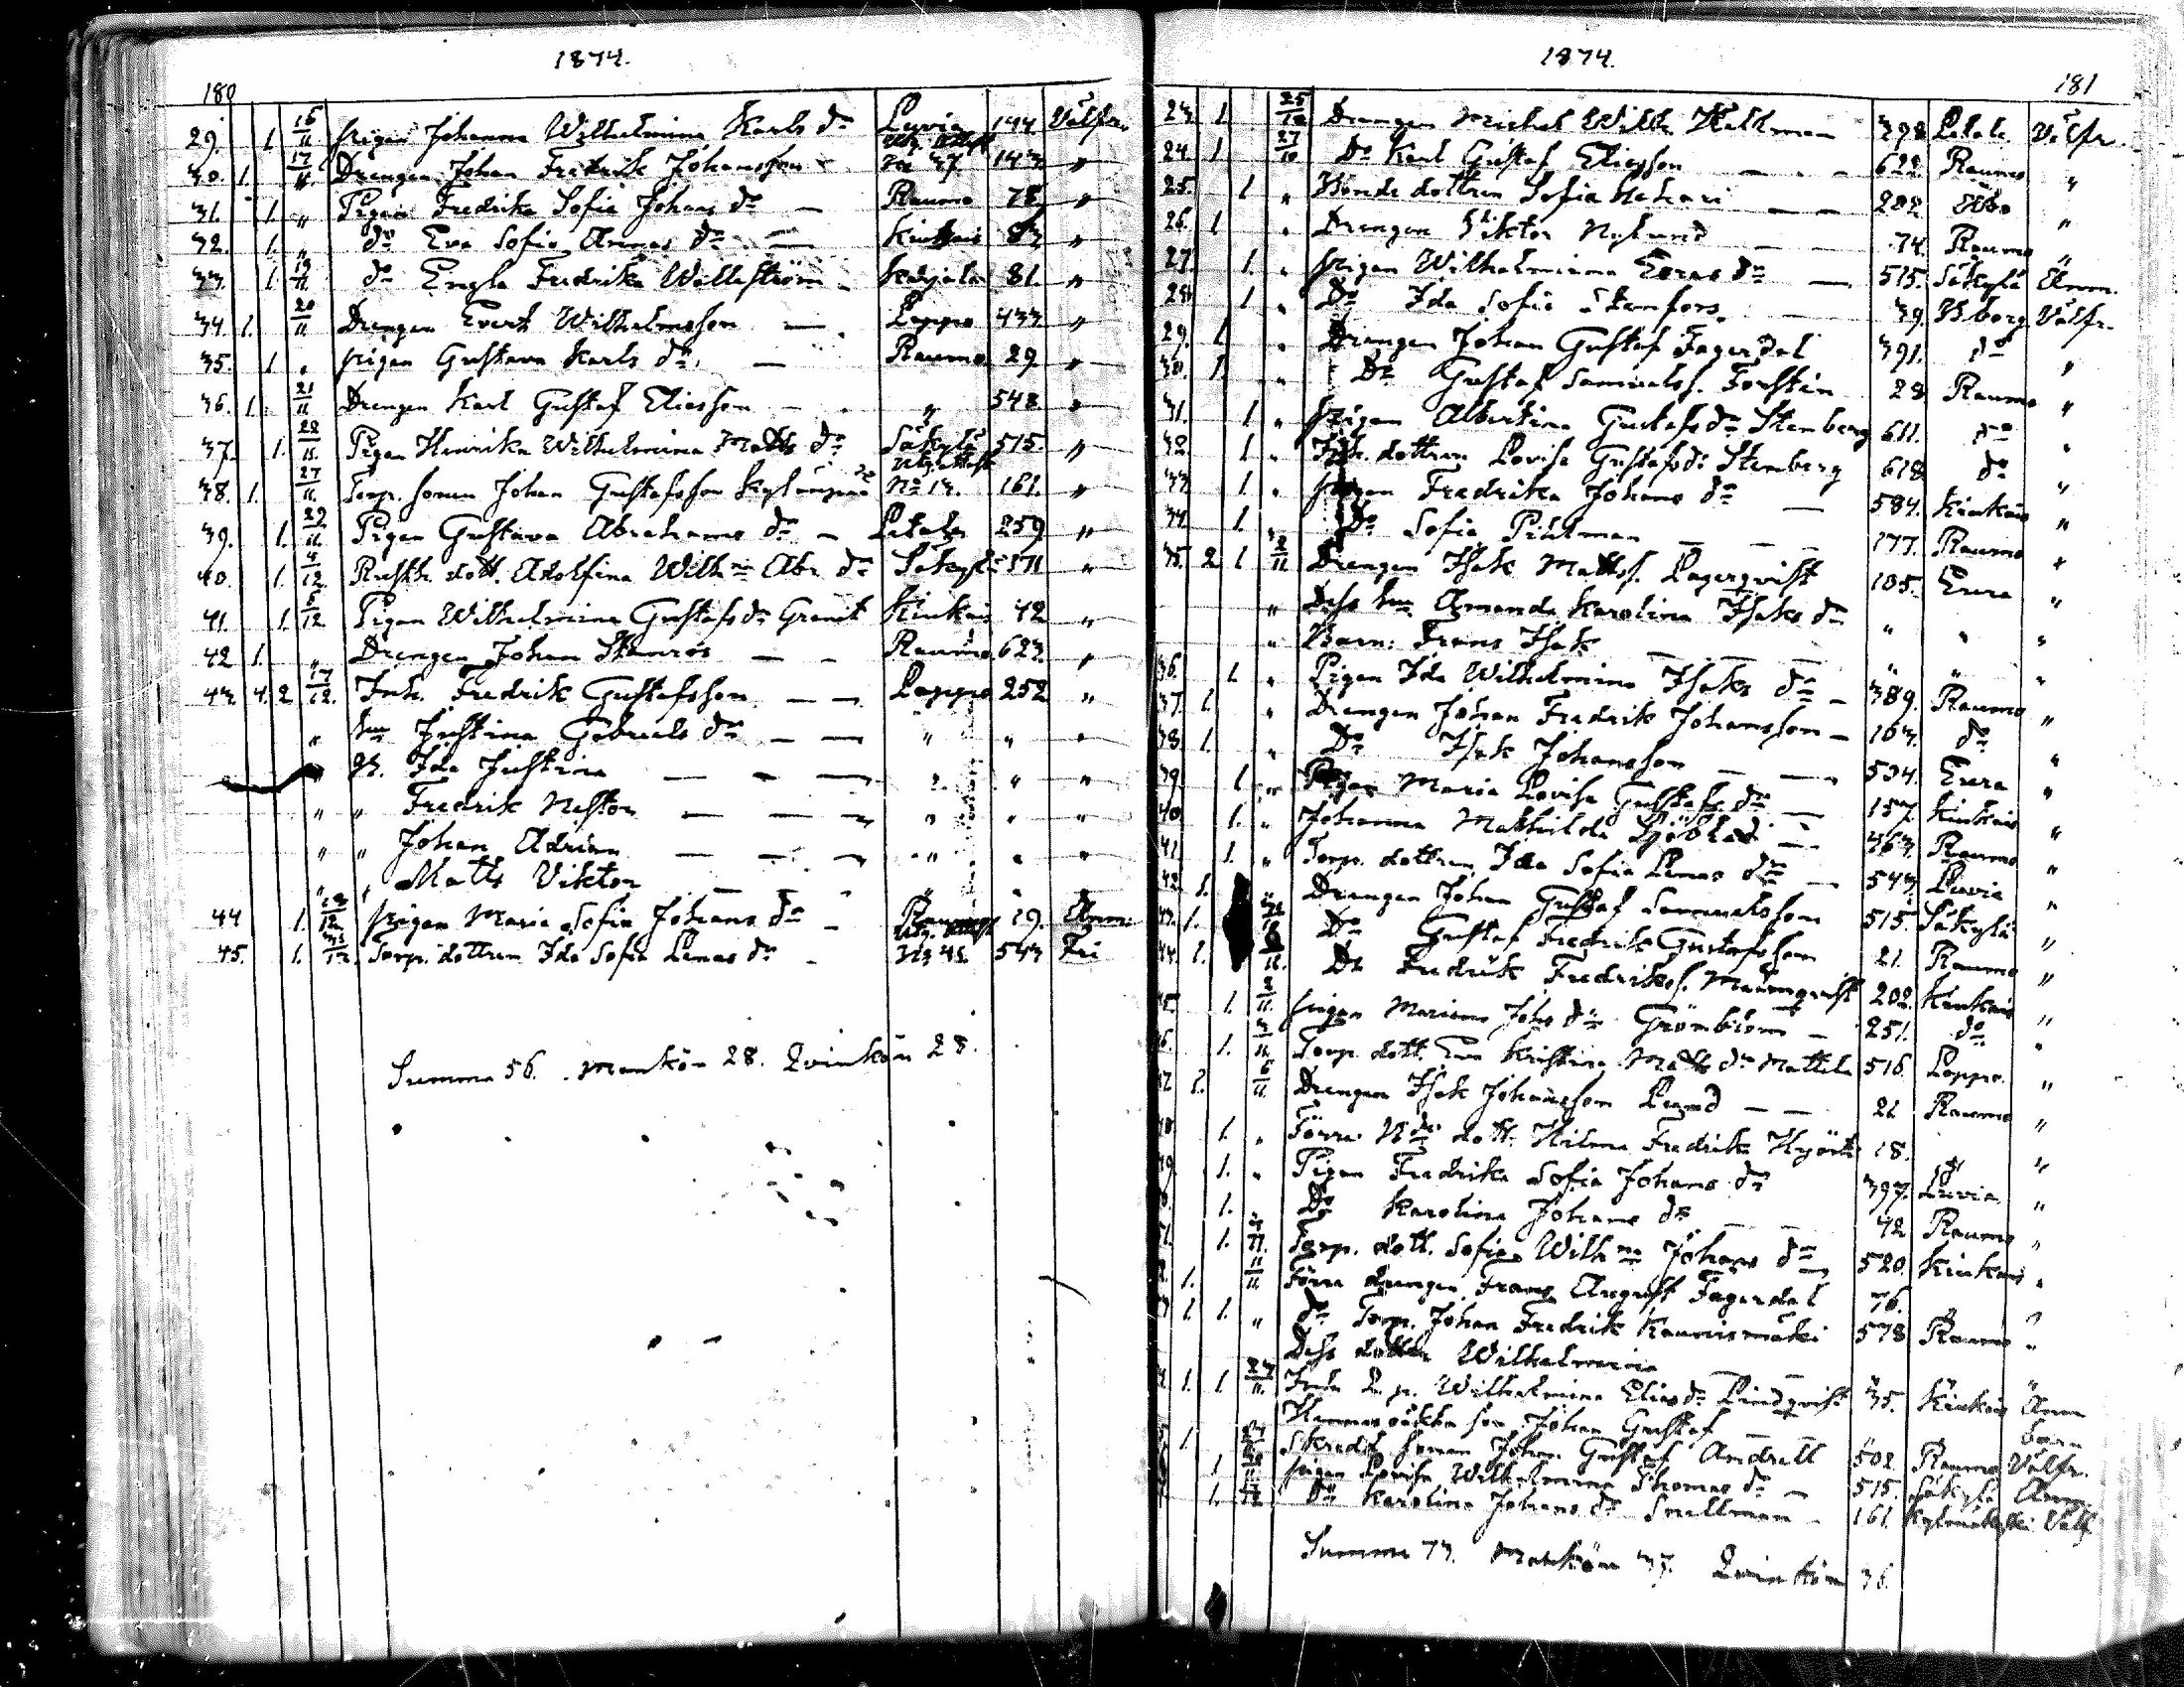 1874.
180
29. 1 16/11 Pigan Johanna Wilhelmina Karls dr Luvia 144 Välfr.
30. 1. 17/11 Drengen Johan Fredrik Johansson No 37. 143 "
31. 1 " Pigan Fredrika Sofia Johans dr — Raumo 78. "
32. 1. " do Eva Sofia Annas dr — Kiukais 83 "
33. 1. 19/11 do Engla Fredrika Wallström — 81. "
34. 1. 20/11 Drengen Evert Wilhelmsson — Lappo 433 "
35. 1 " Pigan Gustava Karls dr. — Raumo 29. "
36. 1. 21/11 Drengen Karl Gustaf Eliasson — " 548. "
37. 1. 22/11 Pigan Henrika Wilhelmina Matts dr Säkylä 515. "
38. 1. 27/11 Torp. sonen Johan Gustafsson No 13. 161. "
39. 1. 29/11 Pigan Gustava Abrahams dr — Letala 259 "
40. 1. 4/12 Rusth. dott. Adolfina Wilhna Abr. dr Säkylä 511 "
41. 1. 5/12 Pigan Wilhelmina Gustafs dr Granit Kiukais 42 "
42 1. " Drengen Johan Stenroos — — Raumo 623. "
43. 4. 2 17/12. Inh. Fredrik Gustafsson — — Lappo 252 "
" hu Justina Gabriels dr — — " " "
" Ida Justina — — — " " "
" " Fredrik Nestor — — — " " "
" " Johan Adrian — — — " " "
" " Matts Viktor — " "
44 1. 19/12 Pigan Maria Sofia Johans dr — Raumo 19. Anm.
45. 1. 31/12. Torp. dottren Ida Sofia Lenas dr — No 45. 543 Fri
Summa 56. Mankön 28. Qvinkön 28.
1874.
181
23. 1 25/10 Drengen Michel Wilh. Hallman 398 Letala Välfr.
24. 1 27/10 Do Karl Gustaf Eliasson — — 622. Raumo "
25. 1 " Bonde dottren Sofia — — 202 Åbo "
26. 1 " Drengen Viktor Nylund — — 74. Raumo "
27. 1. " Pigan Wilhelmina Evas dr — 515. Säkylä Anm.
28. 1 " Do Ida Sofia Stenfors. — 39. Bborg Välfr.
29. 1 " Drengen Johan Gustaf Fagerdal 391. do "
30. 1. " Do Gustaf Samuelss. Forsten 28 Raumo "
31. 1 " Pigan Albertina Gustafs dr Stenberg 611. do "
32. 1 " Inh. dottren Lovisa Gustafs dr Stenberg 618 do "
33 1. " Pigan Fredrika Johans dr — 584. Kiukais "
34. 1. " Do Sofia Pihlman — — 177. Raumo "
35. 2 1 2/11 Drengen Isak Mattss. Lagerqvist 105. Eura "
" Dess hu Amanda Karolina Isaks dr " " "
" Barn: Frans Isak — — " " "
36. 1 " Pigan Ida Wilhelmina Isaks dr — 389. Raumo "
37. 1. " Drengen Johan Fredrik Johansson — 103. do "
38. 1. " Do Isak Johansson — — 534. Eura "
39. 1 " Pigan Maria Lovisa Gustafs dr — 157. Kiukais "
40 1. " Johanna Mathilda Sjöblad — 363. Raumo "
41. 1. " Torp. dottren Ida Sofia Lenas dr — 543 Luvia "
42. 1. Drengen Johan Gustaf Samuelsson 515. Säkylä "
43. 1. Do Gustaf Fredrik Gustafsson 21. Raumo "
44. 1. Do Fredrik Fredrikss. Malmqvist 202. Kiukais "
45. 1. 2/11 Pigan Mariana Johs dr Grönblom — 251. do "
46. 1. Torp. dott. Eva Kristina Matts dr Mattila 516 Lappo "
47 1. 6/11 Drengen Isak Johansson Lund — — 21 Raumo "
48. 1. " Förre dott. Hilma Fredrika Hjort 18. "
49. 1. " Pigan Fredrika Sofia Johans dr 397. Luvia "
1. " Do Karolina Johans dr — — 42 Raumo "
1. Torp. dott. Sofia Wilhna Johans dr 520. Kiukais "
1. 11/11 Förre drengen Frans August Fagerdal 76. "
1. 1. " do Torp. Johan Fredrik Kaunismäki 578 Raumo "
Dess dotter Wilhelmina — — " "
1. 1 24/11 Inh. Wilhelmina Elias dr Lindqvist 35. Kiukais Anm
Hennes oäkta son Johan Gustaf — — barn
1. Skrädd. sonen Johan Gustaf Andrell 502 Raumo Välfr.
1 Pigan Lovisa Wilhelmina Thomas dr — 515. Säkylä Anm.
1. Do Karolina Johans dr Snellman — 161. Välf
Summa 73. Mankön 37. Qvinkön 36.